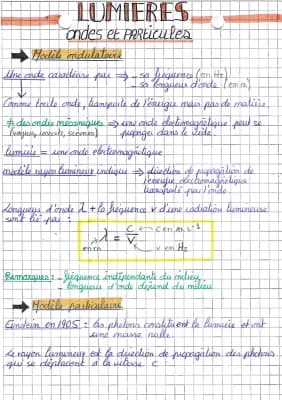 LUMIERES
ondes et PARTICULES
→ Modèle ondulatoire
Une onde caractérisée par ⇒ - sa fréquence (en Hz)
- sa longueur d'onde (en m)
Comme toute onde, transporte de l'énergie mais pas de matière.
≠ des ondes mécaniques ⇒ une onde électromagnétique peut se
(vagues, ressorts, séismes) propager dans le vide.
lumière = une onde électromagnétique
modèle rayon lumineux indique → direction de propagation de
l'énergie électromagnétique
transporté par l'onde.
Longueur d'onde λ + la fréquence ν d'une radiation lumineuse
sont lié par :
λ = c/ν
c en m.s⁻¹
en m
ν en Hz
Remarques : - fréquence indépendante du milieu
- longueur d'onde dépend du milieu
→ Modèle particulaire
Einstein en 1905 : les photons constituent la lumière et ont
une masse nulle.
Le rayon lumineux est la direction de propagation des photons
qui se déplacent à la vitesse c.